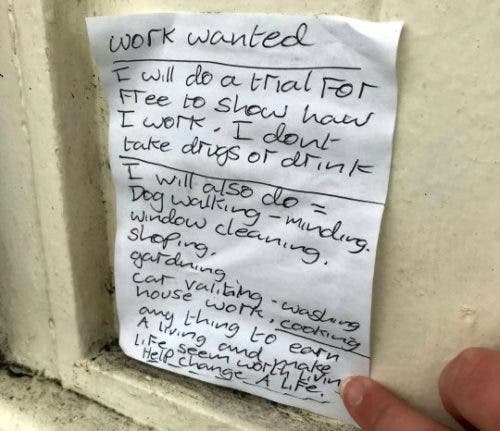 work wanted
I will do a trial For
Free to show how
I work. I dont
take drugs or drink
I will also do =
Dog walking - minding.
window cleaning.
shoping.
gardning
car valiting - washing
house work, cooking
any thing to earn
A living and make
Life seem worth livin
Help change A Life.